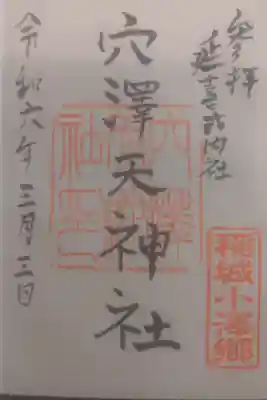 參拝
延喜式内社
穴澤天神社
稲城小澤郷
令和六年三月三日